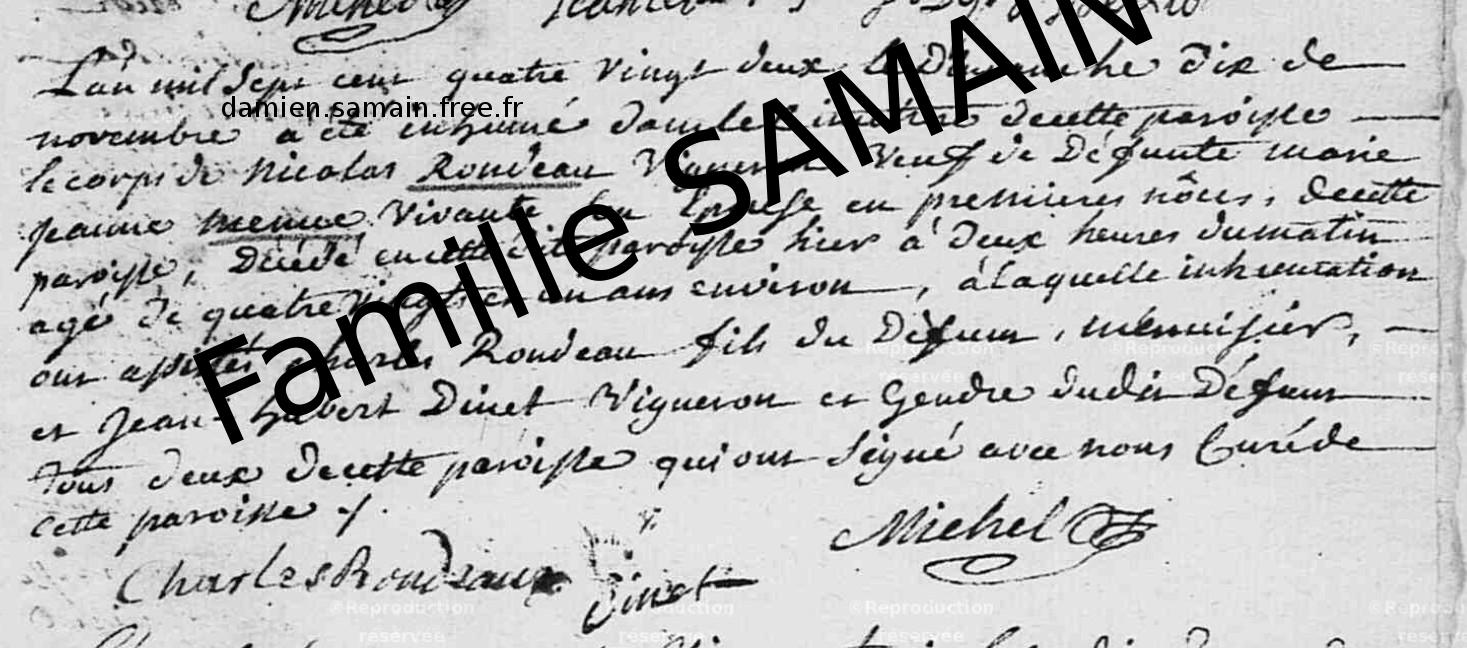 Michel
L'an mil sept cent quatre vingt deux le Dimanche dix de
damien.samain.free.fr
novembre a été inhumé dans le Cimetière decette paroisse
le corps de Nicolas Rondeau Vigneron Veuf de Défunte marie
jeanne menue Vivante son Epouse en premieres nôces, decette
paroisse, Décédé en cette dite paroisse hier à deux heures dumatin
agé de quatre vingts et un ans environ, à laquelle inhumation
ont assistés Charles Rondeau fils du Défunt, menuisier,
et Jean hubert Dinet Vigneron et Gendre dudit Défunt
Tous deux decette paroisse qui ont signé avec nous Curé de
cette paroisse ./.
Famille SAMAIN
Michel
Charles Rondeaux Dinet
©Reproduction réservée
©Reproduction réservée
©Reproduction réservée
©Reproduction réservée
©Reproduction réservée
©Reproduction réservée
©Reproduction réservée